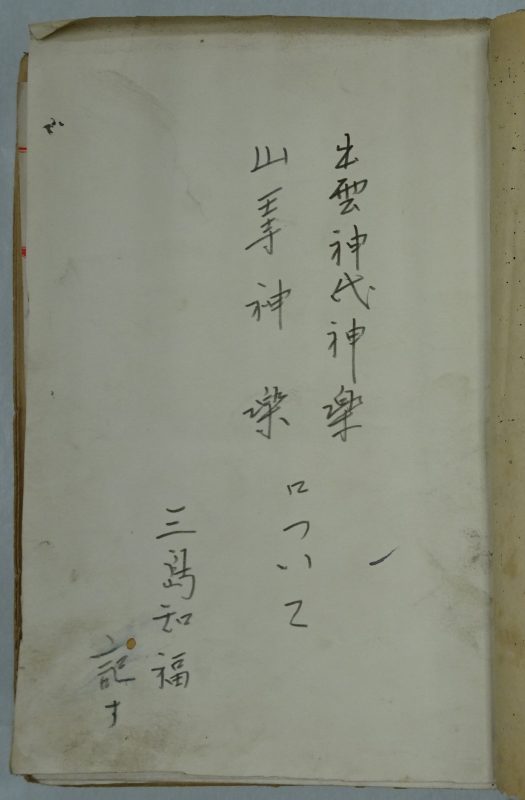 出雲神代神楽
山王寺神楽
について
三島知福
記す